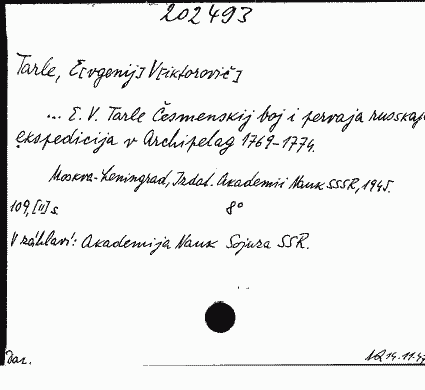 202493
Tarle, E[vgenij] V[iktorovič]
... E. V. Tarle Česmenskij boj i pervaja russkaja
ekspedicija v Archipelag 1769-1774.
Moskva-Leningrad, Izdat. Akademii Nauk SSSR, 1945.
109, [11] s. 8°
V záhlaví: Akademija Nauk Sojuza SSR.
Dar. 14.11.47